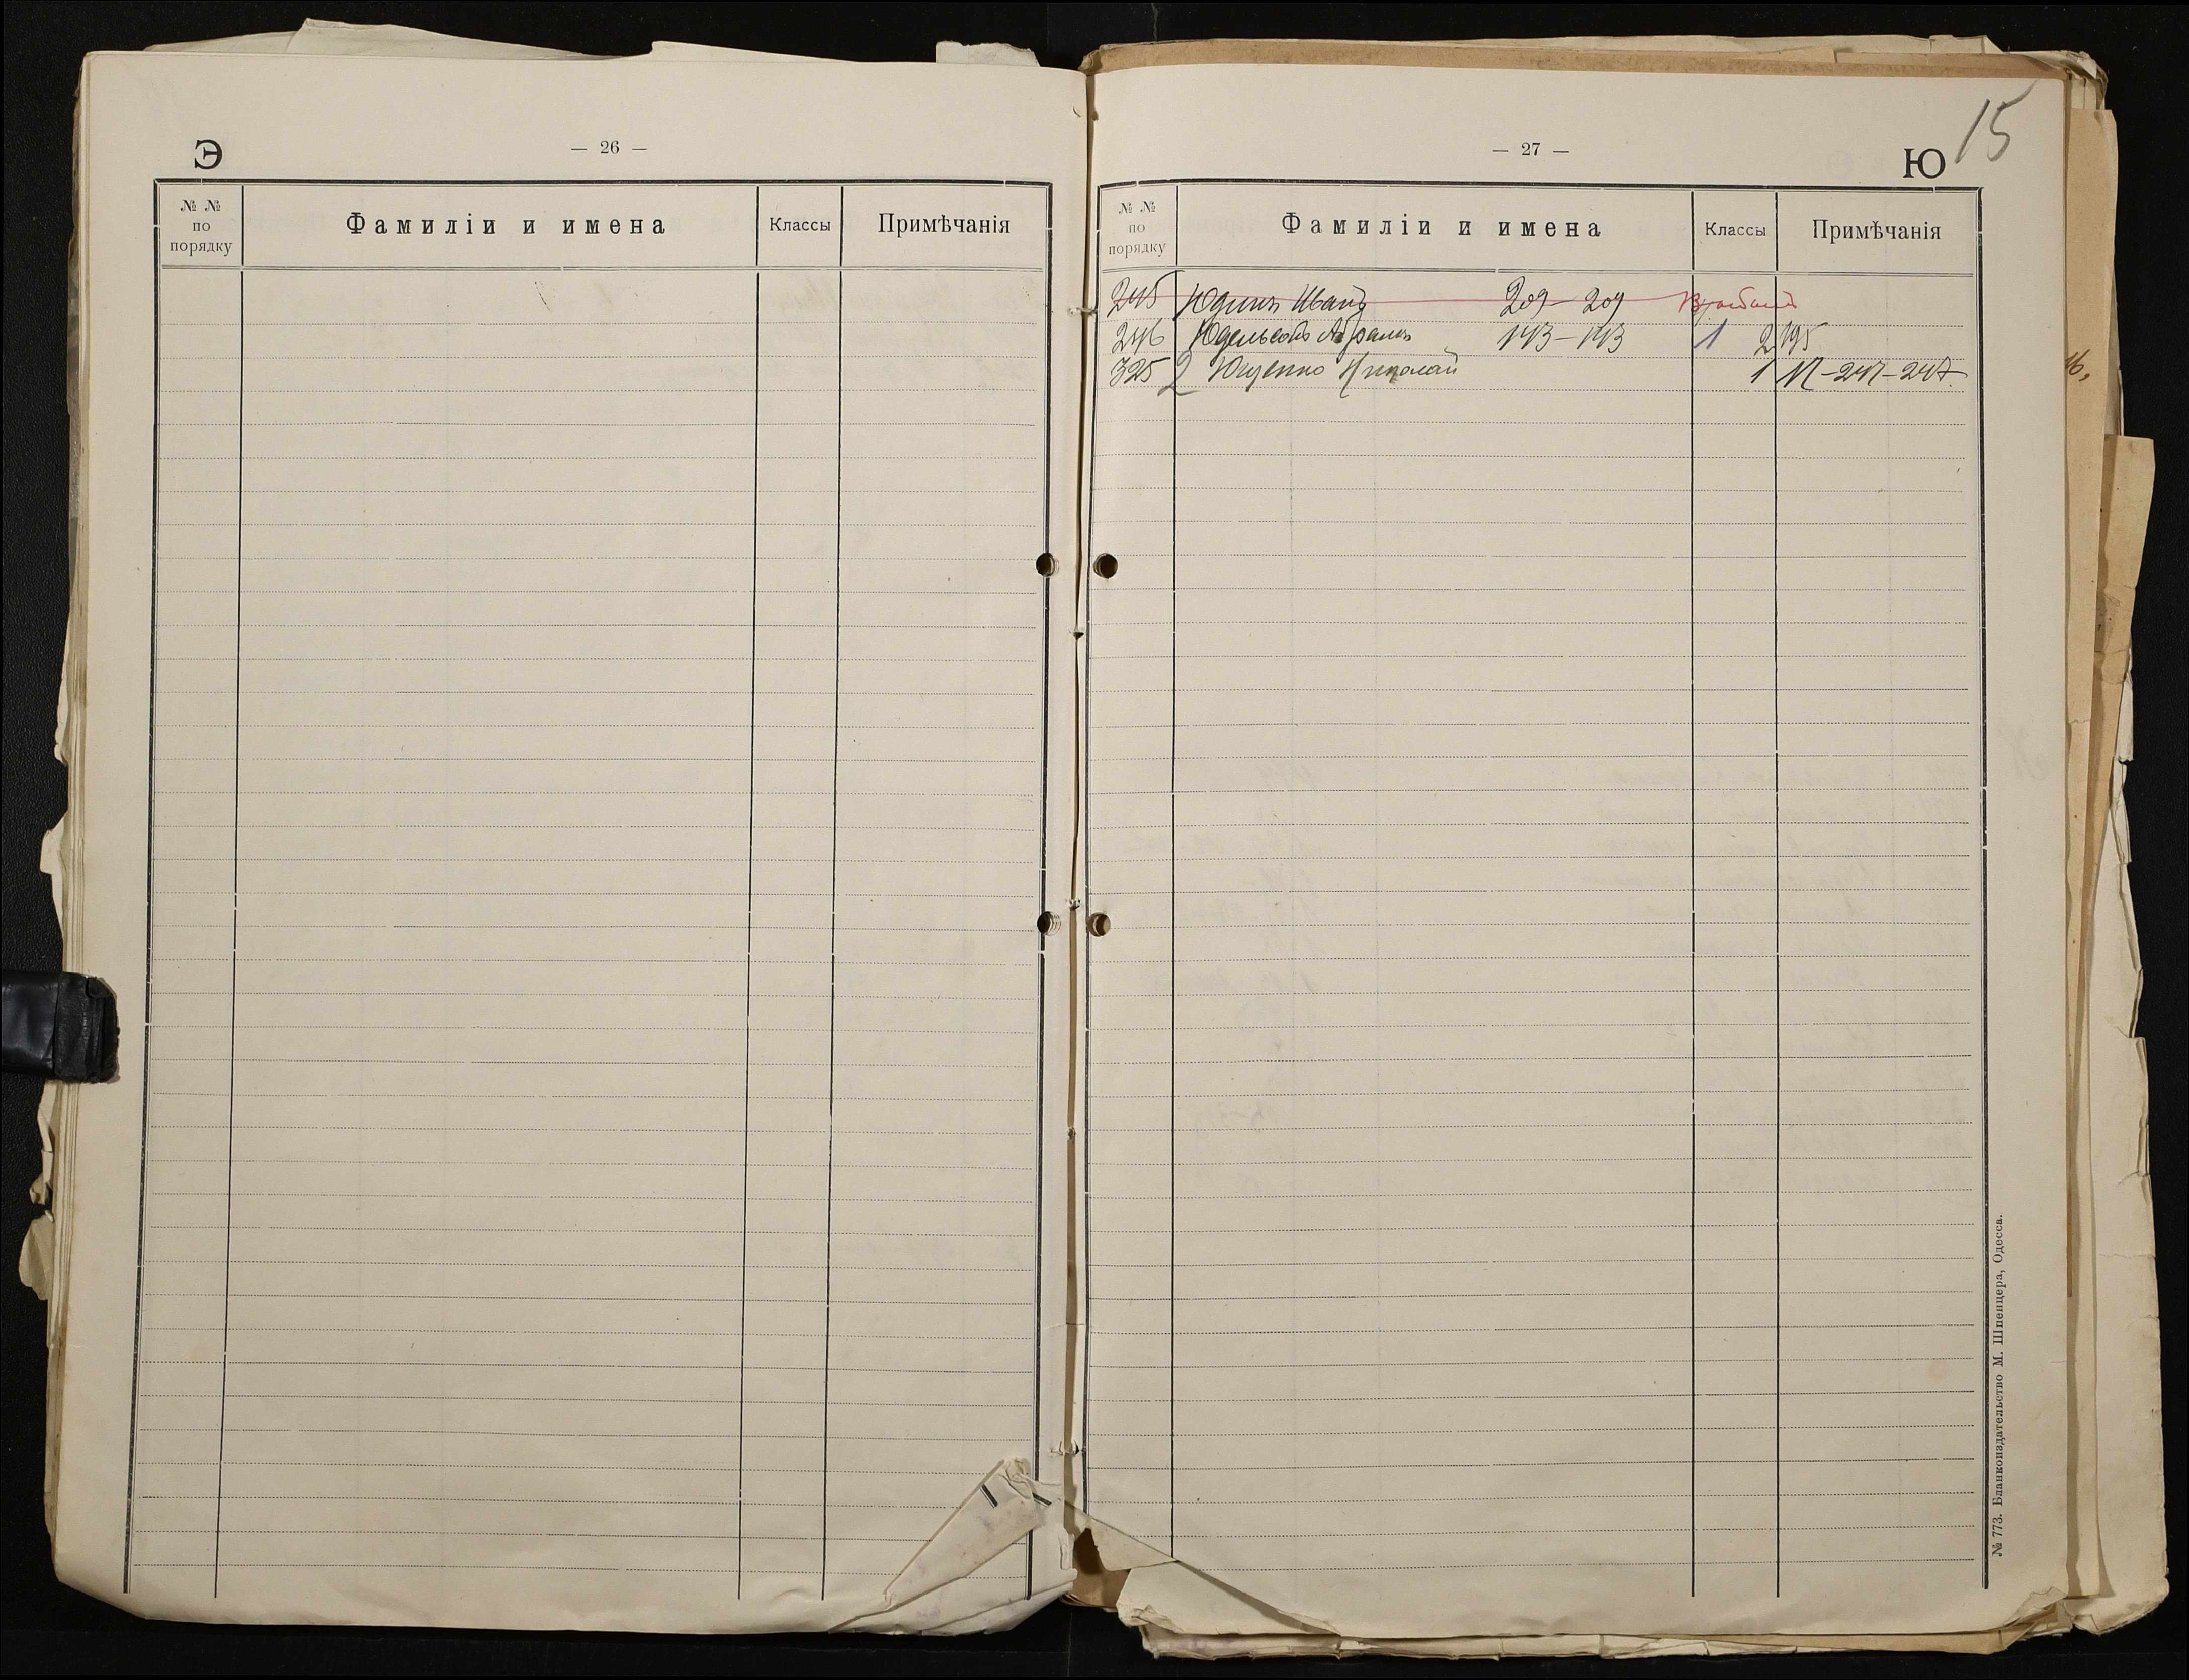 Э
— 26 —
№ №
по
порядку
Фамиліи и имена
Классы
Примѣчанія
15
— 27 —
Ю
№ №
по
порядку
Фамиліи и имена
Классы
Примѣчанія
245 Юдинъ Иванъ 209 – 209
246 Юдельсонъ Абрамъ 143 – 143 1 2 195
325 2 Ющенко Николай 1 247 – 247.
16,
№ 773. Бланкоиздательство М. Шпенцера, Одесса.